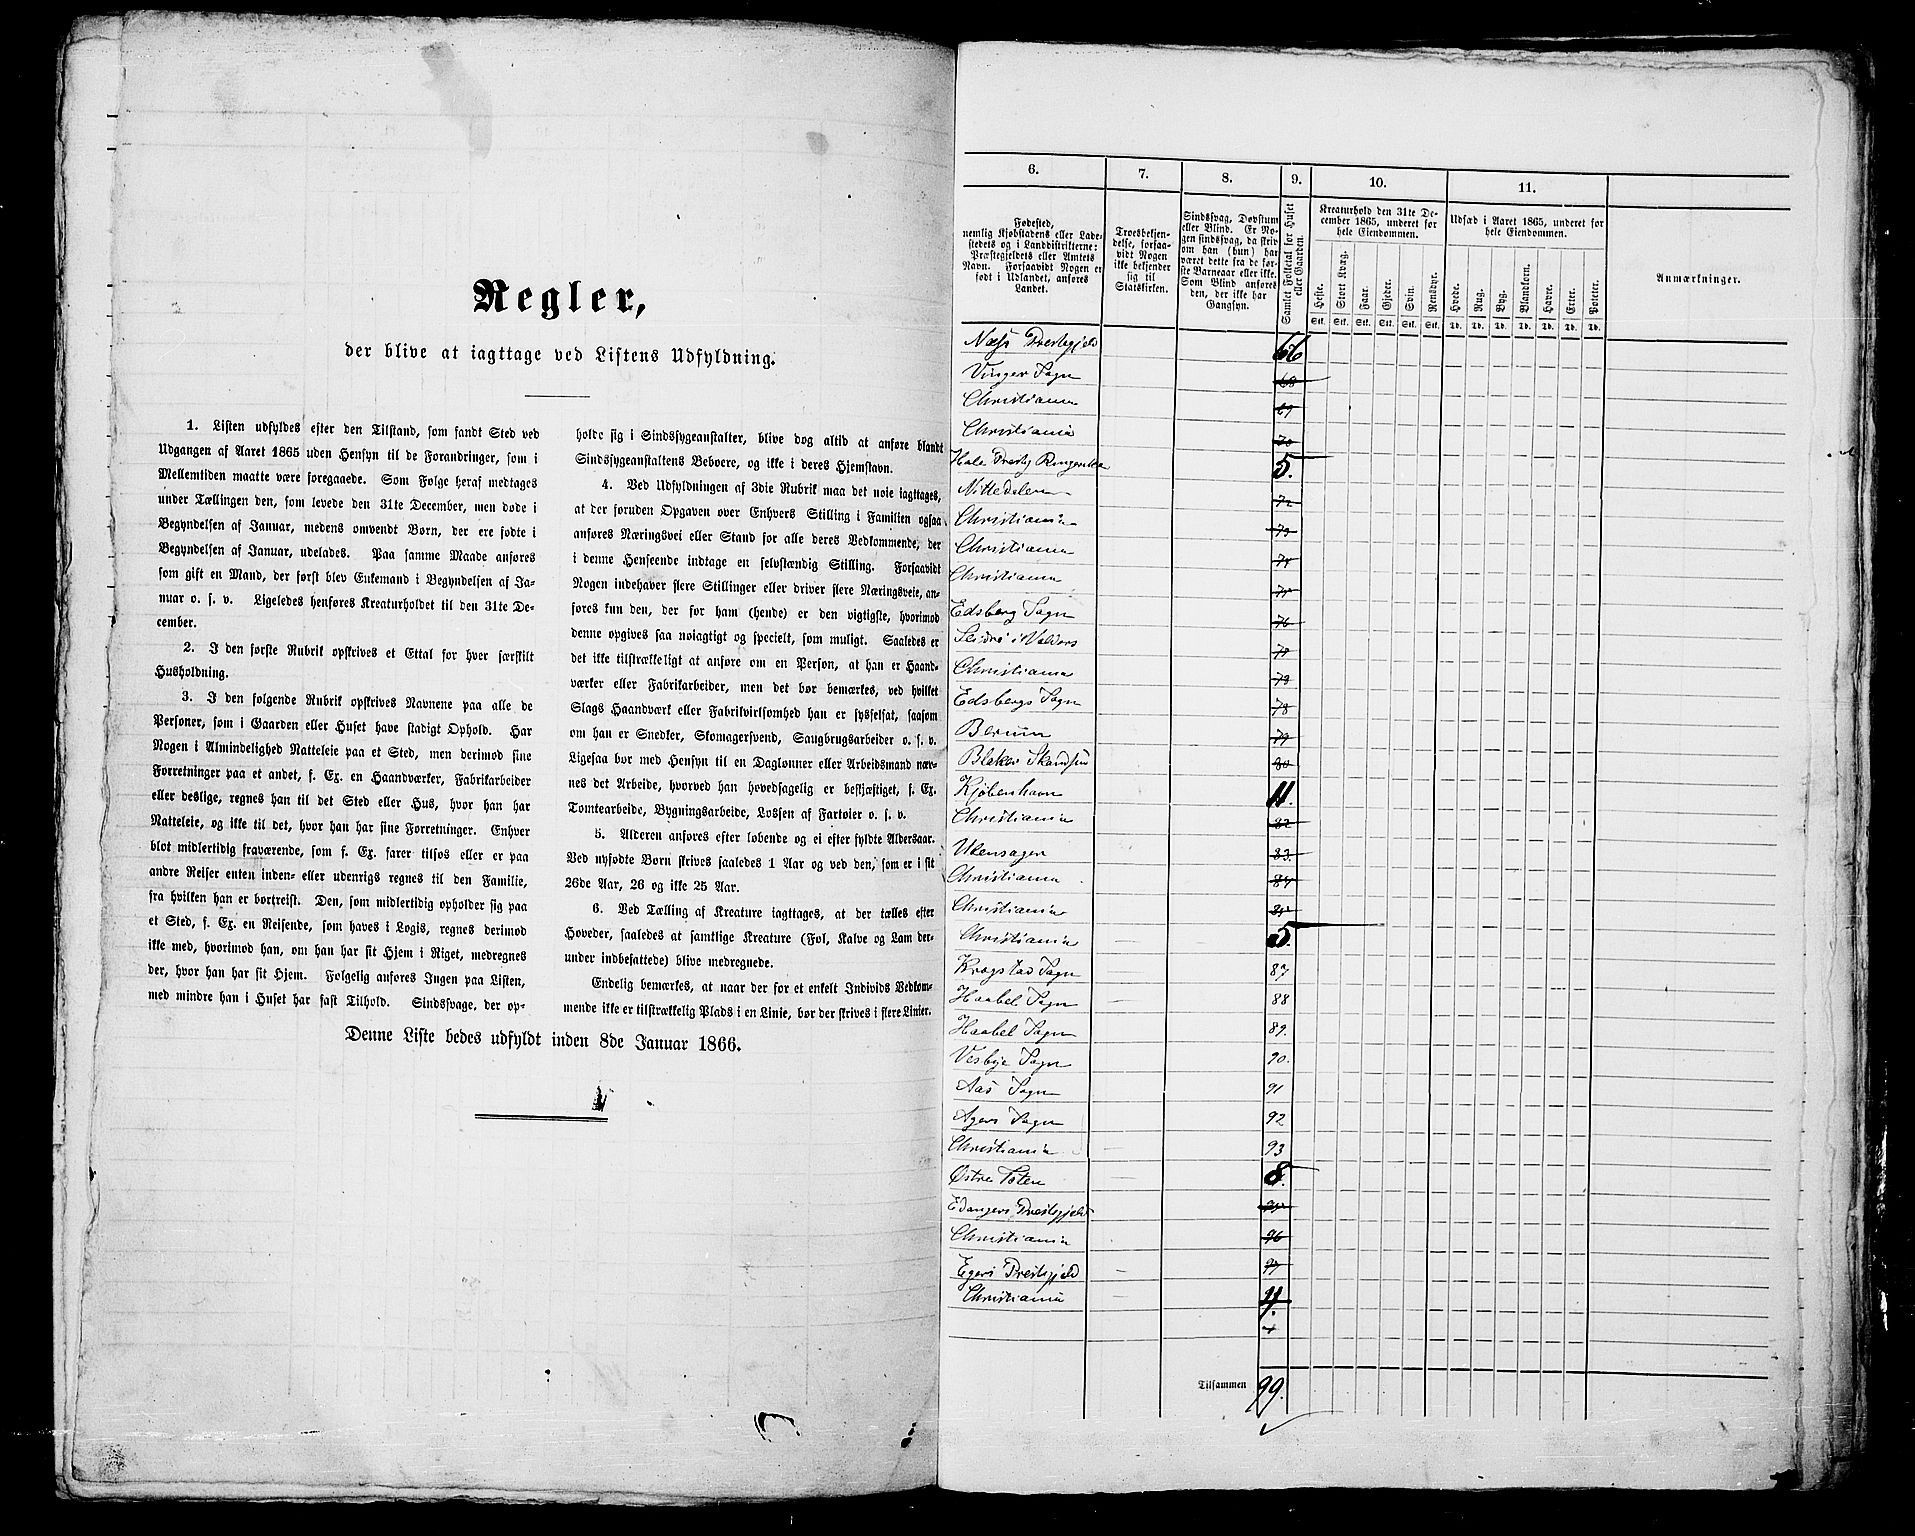 Regler,
der blive at iagttage ved Listens Udfyldning.
1. Listen udfyldes efter den Tilstand, som fandt Sted ved
Udgangen af Aaret 1865 uden Hensyn til de Forandringer, som i
Mellemtiden maatte være foregaaede. Som Følge heraf medtages
under Tællingen den, som levede den 31te December, men døde i
Begyndelsen af Januar, medens omvendt Børn, der ere fødte i
Begyndelsen af Januar, udelades. Paa samme Maade anføres
som gift en Mand, der først blev Enkemand i Begyndelsen af Ja-
nuar o. s. v. Ligeledes henføres Kreaturholdet til den 31te De-
cember.
2. I den første Rubrik opskrives et Ettal for hver særskilt
Husholdning.
3. I den følgende Rubrik opskrives Navnene paa alle de
Personer, som i Gaarden eller Huset have stadigt Ophold. Har
Nogen i Almindelighed Natteleie paa et Sted, men derimod sine
Forretninger paa et andet, f. Ex. en Haandværker, Fabrikarbeider
eller deslige, regnes han til det Sted eller Hus, hvor han har
Natteleie, og ikke til det, hvor han har sine Forretninger. Enhver
blot midlertidig fraværende, som f. Ex. farer tilsøs eller er paa
andre Reiser enten inden- eller udenrigs regnes til den Familie,
fra hvilken han er bortreist. Den, som midlertidig opholder sig paa
et Sted, f. Ex. en Reisende, som haves i Logis, regnes derimod
ikke med, hvorimod han, om han har sit Hjem i Riget, medregnes
der, hvor han har sit Hjem. Følgelig anføres Ingen paa Listen,
med mindre han i Huset har fast Tilhold. Sindssvage, der op-
holde sig i Sindssygeanstalter, blive dog altid at anføre blandt
Sindssygeanstaltens Beboere, og ikke i deres Hjemstavn.
4. Ved Udfyldningen af 3die Rubrik maa det nøie iagttages,
at der foruden Opgaven over Enhvers Stilling i Familien ogsaa
anføres Næringsvei eller Stand for alle deres Vedkommende, der
i denne Henseende indtage en selvstændig Stilling. Forsaavidt
Nogen indehaver flere Stillinger eller driver flere Næringsveie, an-
føres kun den, der for ham (hende) er den vigtigste, hvorimod
denne opgives saa nøiagtigt og specielt, som muligt. Saaledes er
det ikke tilstrækkeligt at anføre om en Person, at han er Haand-
værker eller Fabrikarbeider, men det bør bemærkes, ved hvilket
Slags Haandværk eller Fabrikvirksomhed han er sysselsat, saasom
om han er Snedker, Skomagersvend, Saugbrugsarbeider o. s. v.
Ligesaa bør med Hensyn til en Daglønner eller Arbeidsmand næv-
nes det Arbeide, hvorved han hovedsagelig er beskjæftiget, f. Ex.
Tomtearbeide, Bygningsarbeide, Lossen af Fartøier o. s. v.
5. Alderen anføres efter løbende og ei efter fyldte Aldersaar.
Ved nyfødte Børn skrives saaledes 1 Aar og ved den, som er i sit
26de Aar, 26 og ikke 25 Aar.
6. Ved Tælling af Kreature iagttages, at der tælles efter
Hoveder, saaledes at samtlige Kreature (Føl, Kalve og Lam der-
under indbefattede) blive medregnede.
Endelig bemærkes, at naar der for et enkelt Individs Vedkom-
mende ikke er tilstrækkelig Plads i en Linie, bør der skrives i flere Linier.
Denne Liste bedes udfyldt inden 8de Januar 1866.
6. 7. 8. 9. 10. 11.
Fødested,
nemlig Kjøbstadens eller Lade-
stedets og i Landdistrikterne:
Præstegjeldets eller Amtets
Navn. Forsaavidt Nogen er
født i Udlandet, anføres
Landet.
Troesbekjen-
delse, forsaa-
vidt Nogen
ikke bekjender
sig til
Statskirken.
Sindssvag, Døvstum
eller Blind. Er No-
gen sindssvag, da skriv
om han (hun) har
været dette fra de før-
ste Barneaar eller ikke.
Som Blind anføres
den, der ikke har
Gangsyn.
Samlet Folketal for Huset
eller Gaarden.
Kreaturhold den 31te De-
cember 1865, underet for
hele Eiendommen.
Heste. Stort Kvæg. Faar. Gjeder. Svin. Rensdyr.
Stk. Stk. Stk. Stk. Stk. Stk.
Udsæd i Aaret 1865, underet for
hele Eiendommen.
Hvede. Rug. Byg. Blandkorn. Havre. Erter. Poteter.
Td. Td. Td. Td. Td. Td. Td.
Anmærkninger.
Næss Prestegjeld 66
Vinger Sogn 68
Christiania 69
Christiania 70
Hole Prestg Ringerike 5.
Nittedalen 72
Christiania 73
Christiania 74
Christiania 75
Edsberg Sogn 76
Slidre i Valders 77
Christiania 78
Edsbergs Sogn 78
Berum 79
Blaker Skandse 80
Kjøbenhavn 11.
Christiania 82
Ukensagen 83
Christiania 84
Christiania 85
Christiania 5.
Krogstad Sogn 87
Haabel Sogn 88
Haabel Sogn 89.
Vesbye Sogn 90.
Aas Sogn 91
Agers Sogn 92
Christiania 93
Østre Toten 8.
Edangers Prestegjeld 95
Christiania 96
Egers Prestegjeld 97
Christiania 4.
Tilsammen 99.